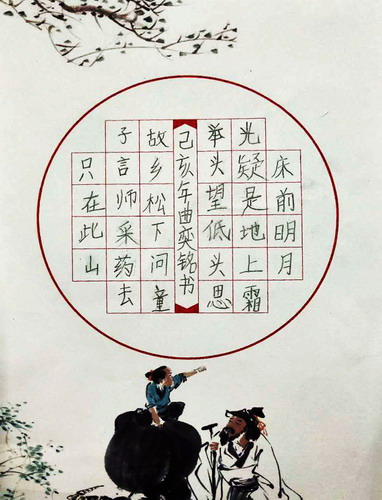 床前明月
光疑是地上霜
举头望低头思
己亥年曲奕铭书
故乡松下问童
子言师采药去
只在此山